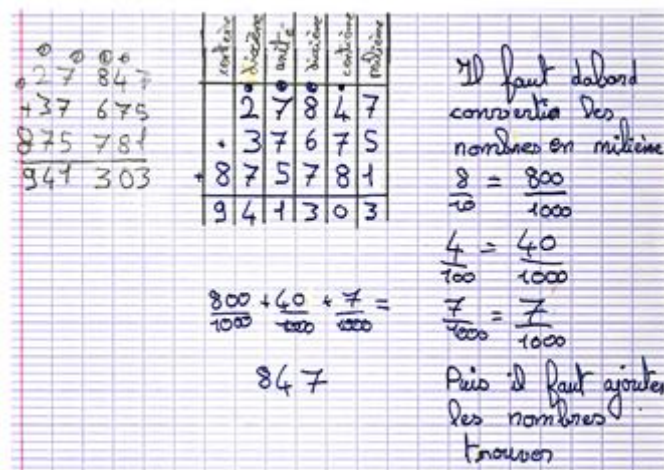 27 847
+37 675
875 781
941 303
centaine dizaine unité dixième centième millième
2 7 8 4 7
3 7 6 7 5
+ 8 7 5 7 8 1
9 4 1 3 0 3
800/1000 + 40/1000 + 7/1000 =
847
Il faut dabord
convertir les
nombres en milième
8/10 = 800/1000
4/100 = 40/1000
7/1000 = 7/1000
Puis il faut ajouter
les nombres
trouver